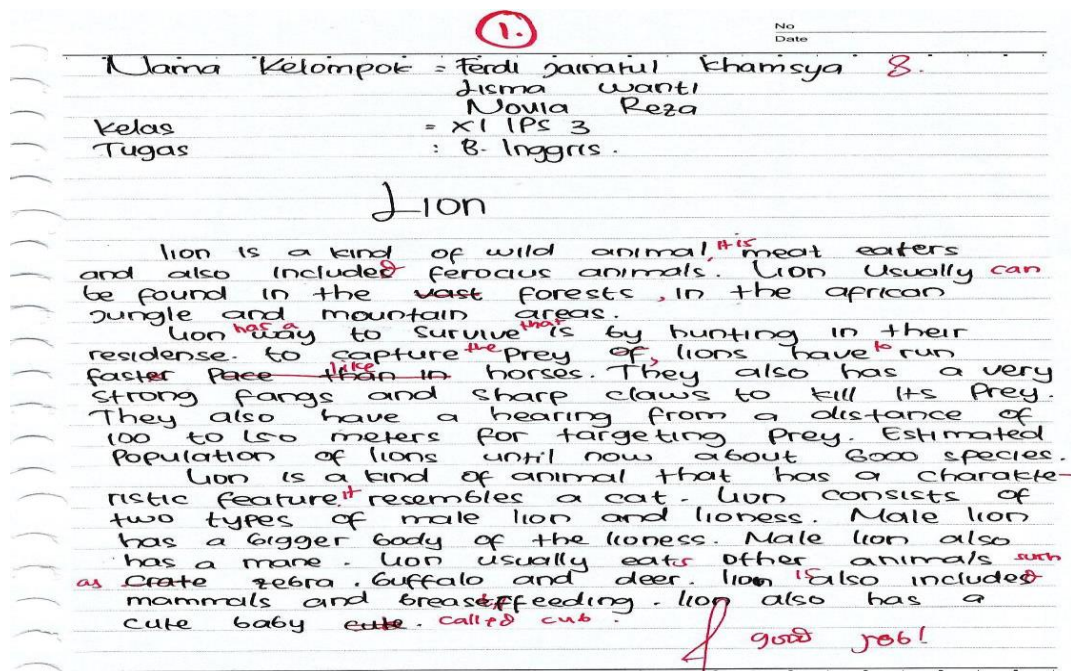 1.
No
Date
Nama Kelompok = Ferdi Jamatul Khamsya 8.
Lisma Wanti
Novia Reza
Kelas = XI IPS 3
Tugas : B. Inggris.
Lion
lion is a kind of wild animal, it is meat eaters
and also included ferocius animals. Lion usually can
be found in the vast forests, in the african
Jungle and mountain areas.
Lion has a way to survive that is by hunting in their
residense. to capture the prey of, lions have to run
faster Pace than in like horses. They also has a very
strong fangs and sharp claws to kill its prey.
They also have a hearing from a distance of
100 to 150 meters for targeting prey. Estimated
Population of lions until now about 6000 species.
Lion is a kind of animal that has a charakte-
ristic feature, it resembles a cat. Lion consists of
two types of male lion and lioness. Male lion
has a bigger body of the lioness. Male lion also
has a mane. Lion usually eats other animals such
as Crate zebra. buffalo and deer. lion is also included
mammals and breastfeeding. lion also has a
cute baby cute. called cub.
good job!